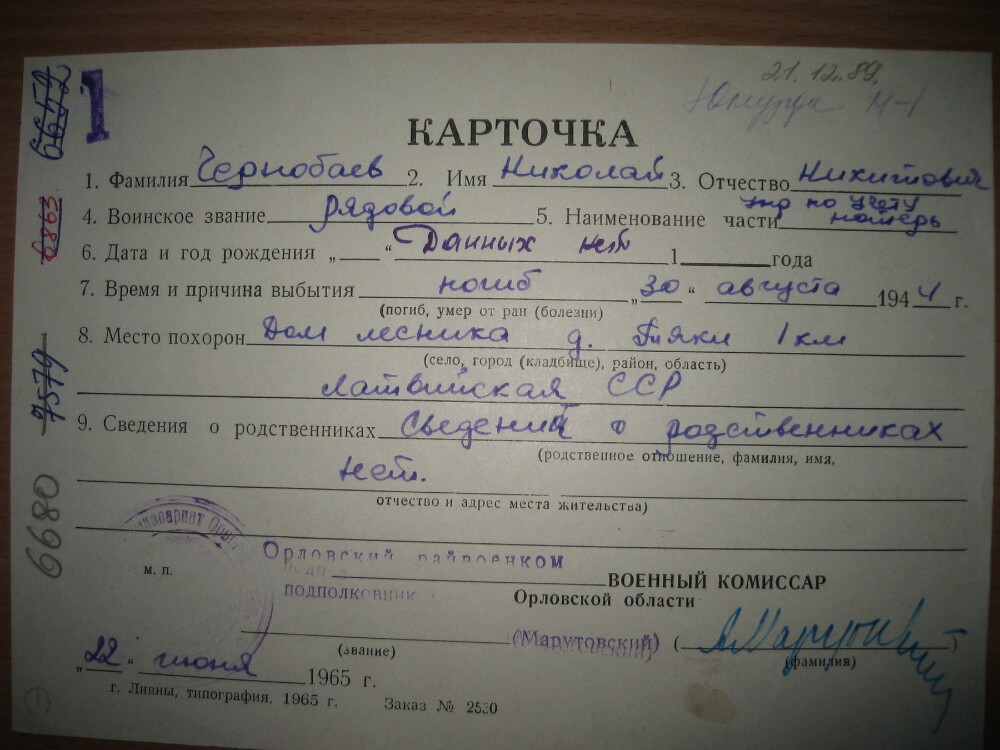 21.12.89.
6652
1
КАРТОЧКА
1. Фамилия Чернобаев 2. Имя Николай 3. Отчество Никитович
6863
4. Воинское звание рядовой 5. Наименование части по учету потерь
6. Дата и год рождения „ “ Данных нет 1 года
7. Время и причина выбытия погиб „30“ августа 1944 г.
(погиб, умер от ран (болезни)
8. Место похорон Дом лесника д. Гияки 1 км
(село, город (кладбище), район, область)
7579
Латвийская ССР
9. Сведения о родственниках Сведений о родственниках
(родственное отношение, фамилия, имя,
нет.
отчество и адрес места жительства)
6680
Орловский райвоенком
м. п.
ВОЕННЫЙ КОМИССАР
подполковник
Орловской области
(Марутовский) ( )
(звание)
(фамилия)
„22“ июня 1965 г.
г. Ливны, типография. 1965 г. Заказ № 2530